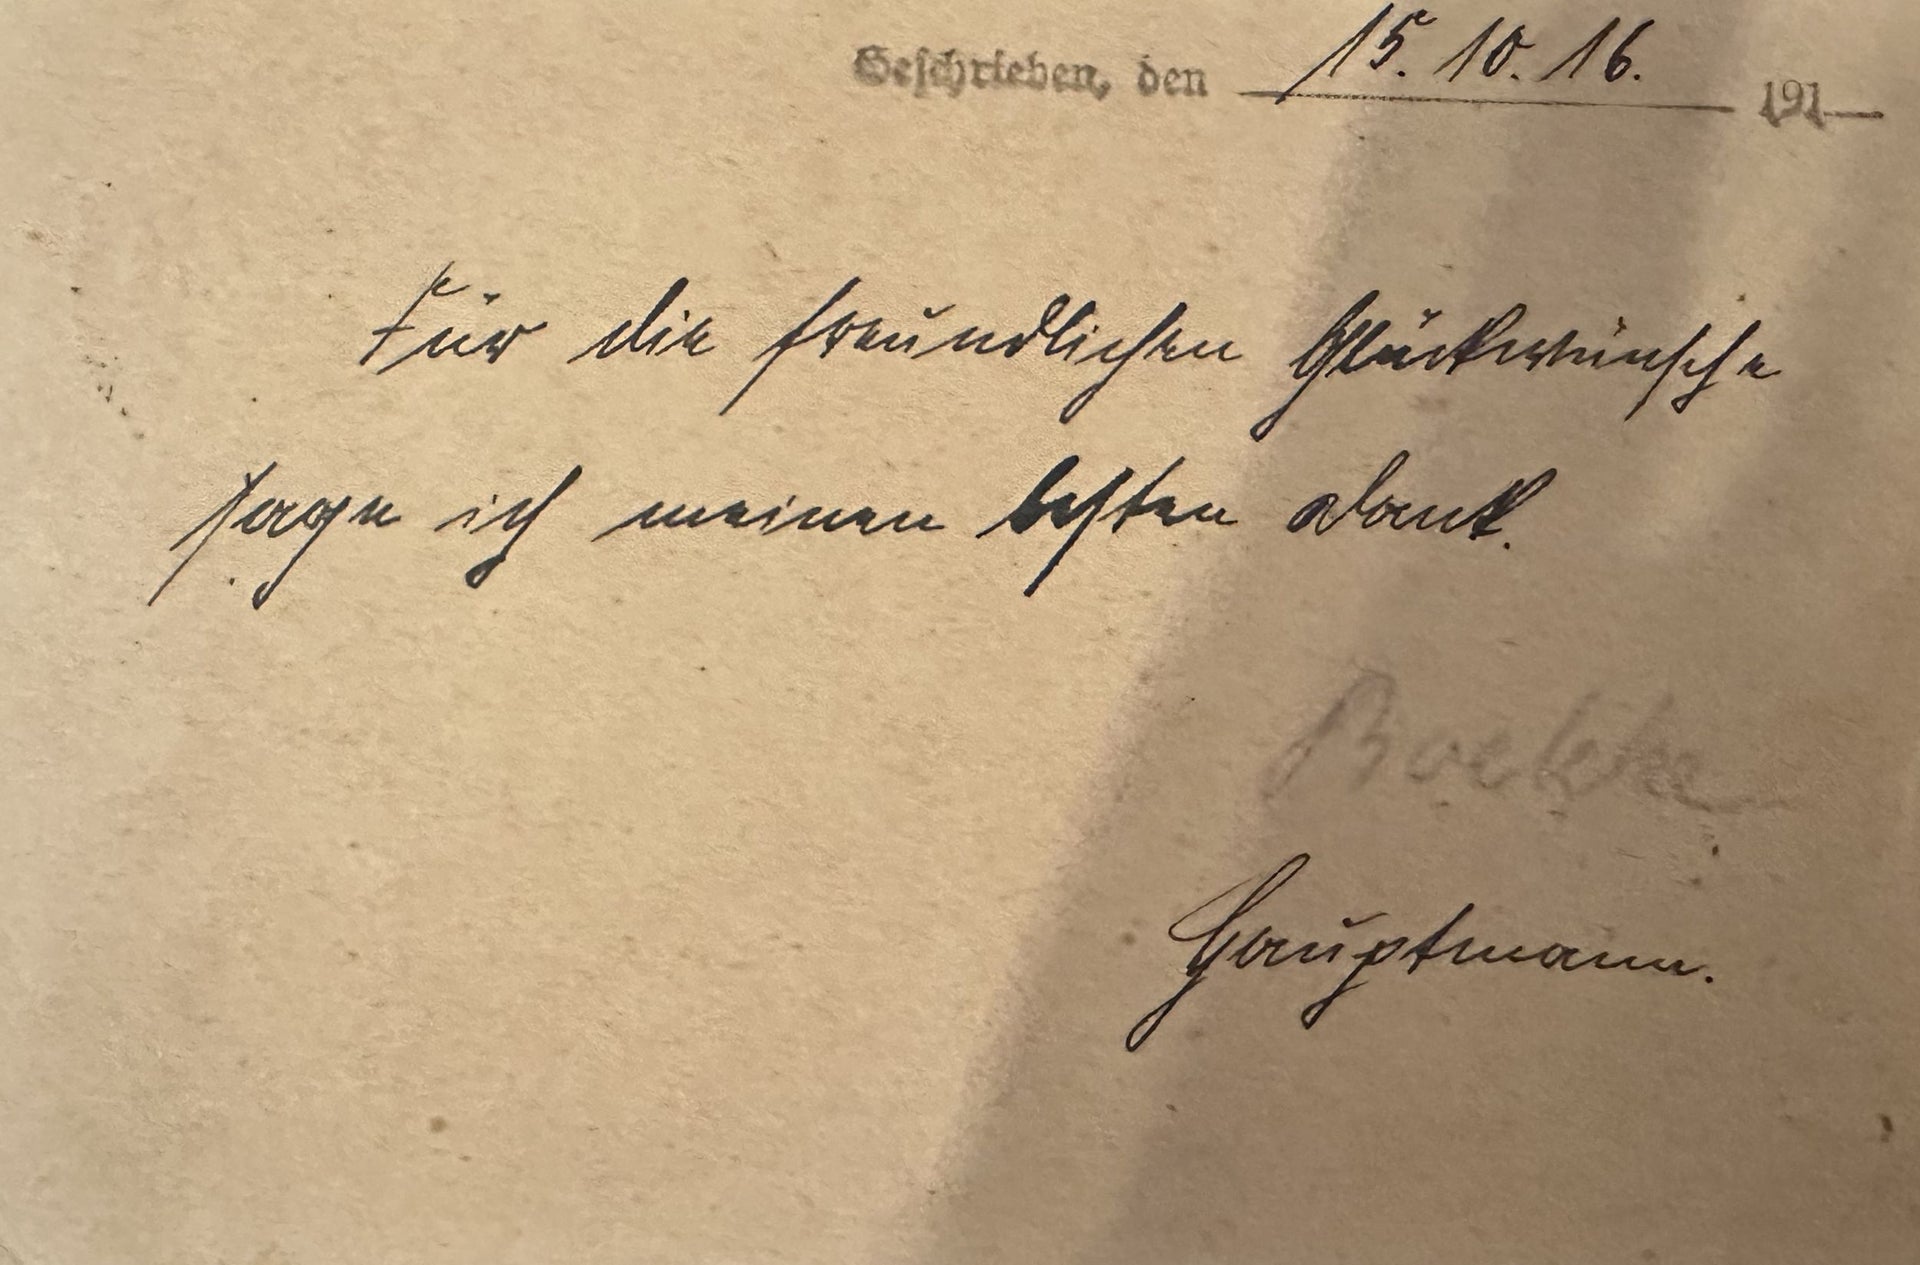 Geschrieben, den 15. 10. 16. 191
Für die freundlichen Glückwünsche
sage ich meinen besten Dank.
Boelcke
Hauptmann.